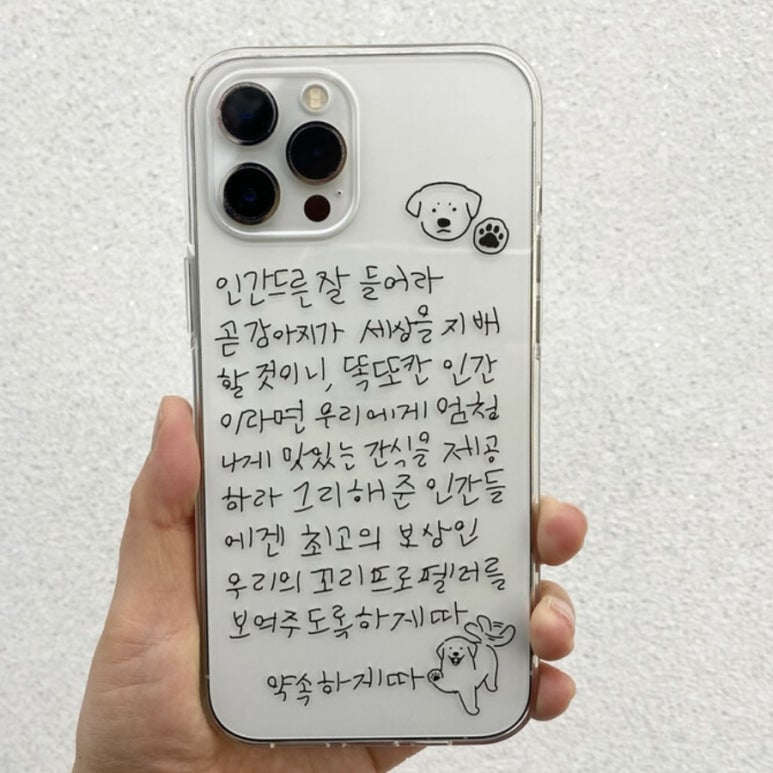 인간드른 잘 들어라
곧 강아지가 세상을 지배
할 것이니, 똑또칸 인간
이라면 우리에게 엄청
나게 맛있는 간식을 제공
하라 그리해 준 인간들
에겐 최고의 보상인
우리의 꼬리프로펠러를
보여주도록하게따
약속하게따